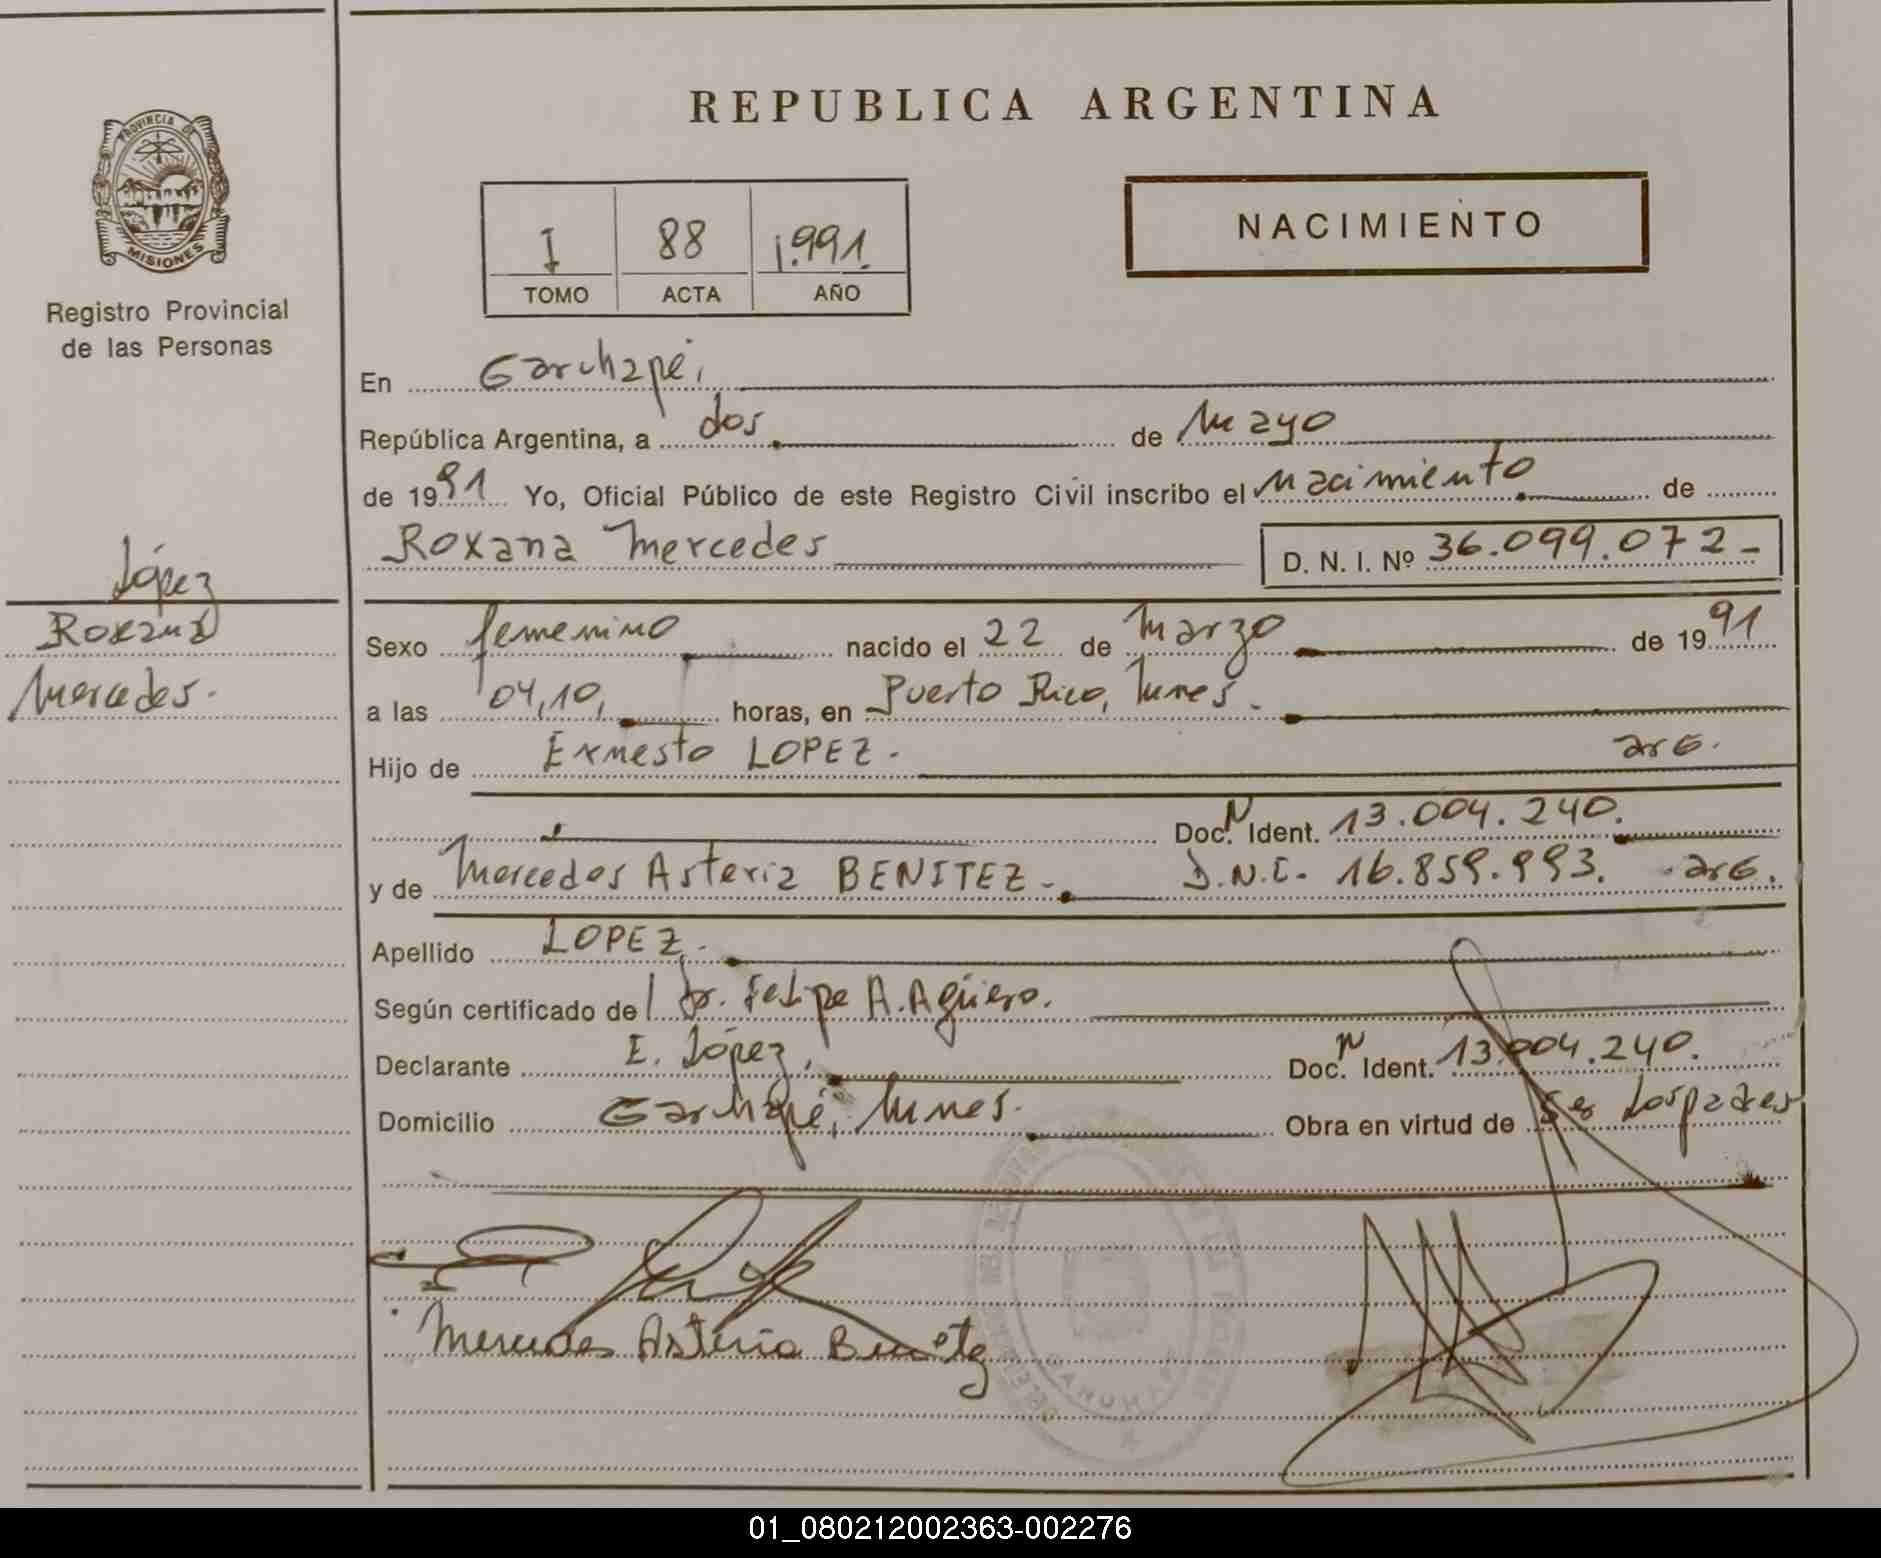 PROVINCIA DE
MISIONES
Registro Provincial
de las Personas
López
Roxana
Mercedes.
REPUBLICA ARGENTINA
I 88 1.991.
TOMO ACTA AÑO
NACIMIENTO
En Garuhapé,
República Argentina, a dos de Mayo
de 1991 Yo, Oficial Público de este Registro Civil inscribo el Nacimiento de
Roxana Mercedes D. N. I. Nº 36.099.072-
Sexo femenino nacido el 22 de Marzo de 1991
a las 04,10, horas, en Puerto Rico, Mnes.
Hijo de Ernesto LOPEZ. arG.
Doc. N Ident. 13.004.240.
y de Mercedes Asteria BENITEZ. D.N.I. 16.859.993. arG.
Apellido LOPEZ.
Según certificado de Dr. Felipe A. Agüero.
Declarante E. López, Doc. N Ident. 13.004.240.
Domicilio Garuhapé, Mnes. Obra en virtud de Ser los padres
Mercedes Asteria Benitez
GARUHAPE
01_080212002363-002276